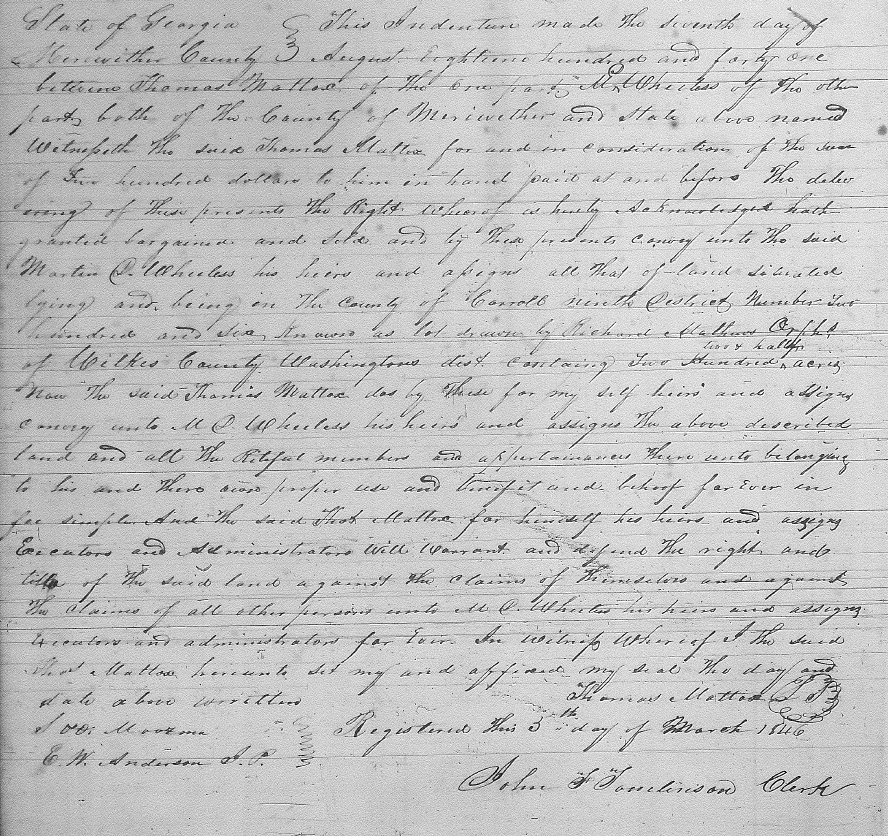 State of Georgia } This Indenture made the seventh day of
Meriwether County } August Eighteene hundred and forty one
between Thomas Mattox of the one part M Wheeless of the other
part both of the County of Meriwether and State above named
Witnesseth the said Thomas Mattox for and in consideration of the sum
of Two hundred dollars to him in hand paid at and before the deliv
ering of these presents the Right whereof is hereby Acknowledged hath
granted bargained and sold and by these presents convey unto the said
Martin C. Wheeless his heirs and assigns all that of land situated
lying and being in the County of Carroll ninth District Number Two
hundred and six known as lot drawn by Richard Mathews Orphs
of Wilkes County Washingtons dist. containg Two Hundred two & half acres
Now the said Thomas Mattox dos by these for my self heirs and assigns
convey unto M C. Wheeless his heirs and assigns the above described
land and all the Ritful members and appertainances there unto belonging
to his and there own proper use and benefit and behoof for Ever in
fee simple And the said Thos Mattox for himself his heirs and assigns
Executors and Administrators Will Warrant and defend the right and
title of the said land against the claims of themselves and against
the claims of all other persons unto M C. Wheeless his heirs and assigns
executors and administrators for Ever. In witness Whereof I the said
Thos Mattox hereunto set my and affixed my seal the day and
date above written Thomas Mattox L S
Moozmn
E. W. Anderson J. P. Registered this 5th day of March 1846
John F Tomlinson Clerk